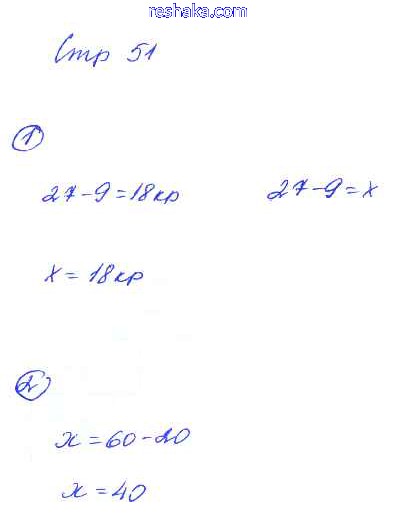 reshaka.com
Стр 51
1
27-9=18кр 27-9=x
x=18кр
2
x=60-20
x=40